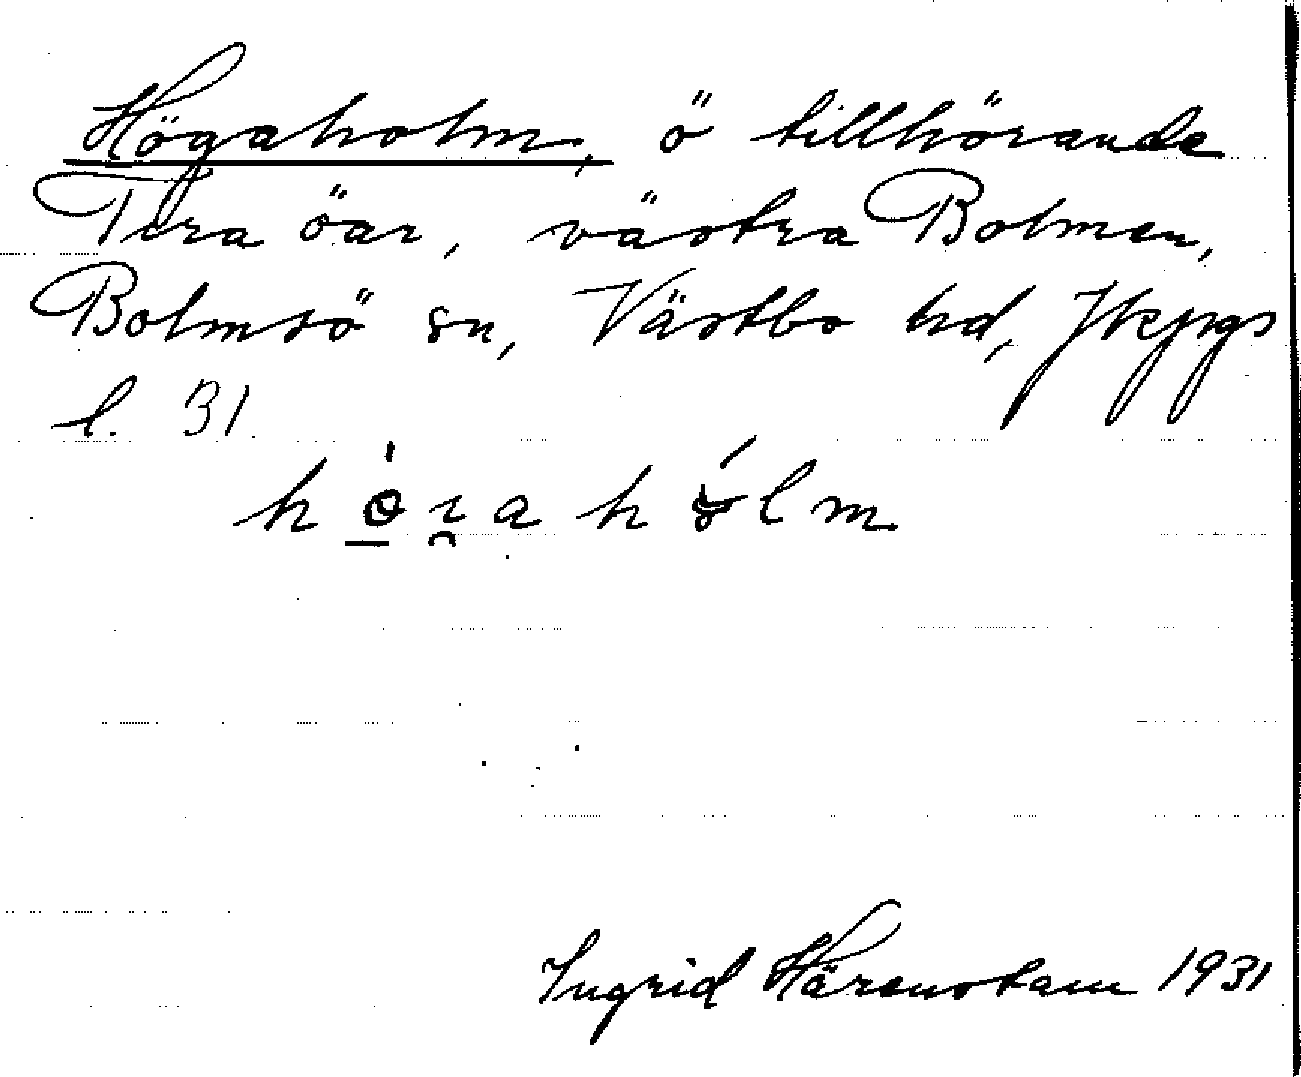 Högaholm, ö tillhörande
Tira öar, västra Bolmen,
Bolmsö sn, Västbo hd, Jkpgs
l. 31
Ingrid Härenstam 1931